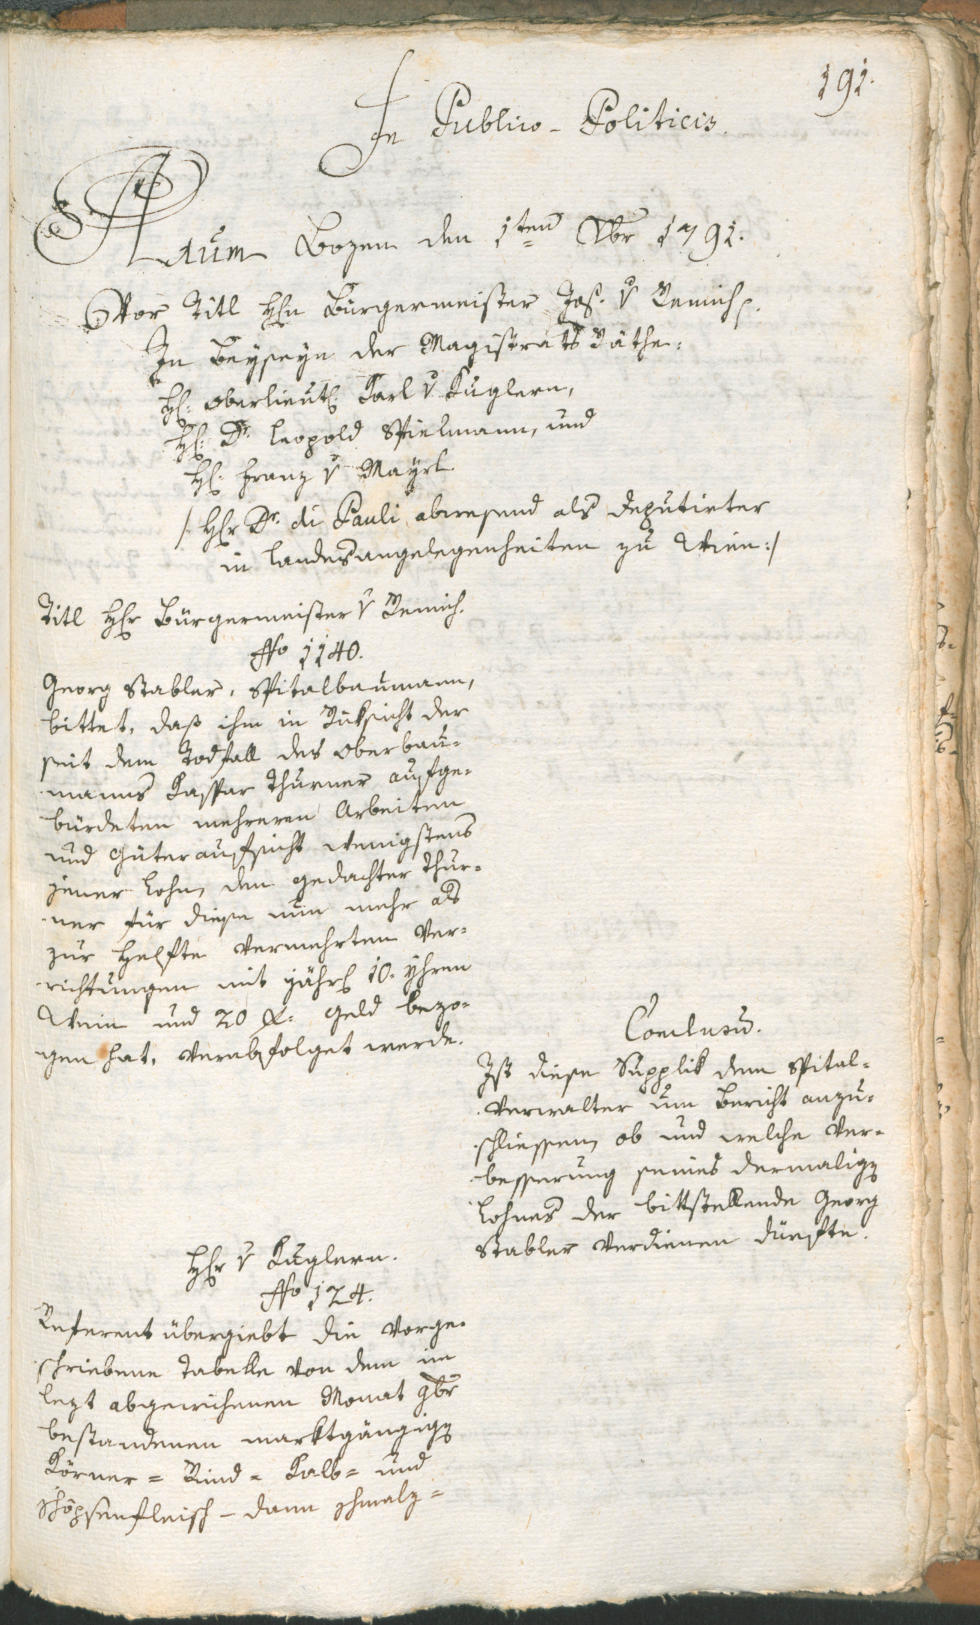 191.
In Publico-Politicis.
Actum Bozen den 1ten Xbr 1791.
Vor Titl Hhn Bürgermeister Jos. v Remich.
In Beyseyn der Magistrats Räthe:
H: Oberlieut: Karl v Kuglern,
H: Dr. Leopold Spielmann, und
H: Franz v Mayrl.
/: Hhr Dr. di Pauli abwesend als Deputirter
in Landesangelegenheiten zu Wien :/
Titl Hhr Bürgermeister v Remich.
No 1140.
Georg Stabler, Spitalbaumann,
bittet, daß ihm in Rüksicht der
seit dem Todfall des Oberbau-
manns Kaspar Thurner aufge-
bürdeten mehreren Arbeiten
und Güteraufsicht wenigstens
jener Lohn, den gedachter Thur-
ner für diese nun mehr als
zur Helfte vermehrten Ver-
richtungen mit jährl 10. Yhren
Wein und 20 f: Geld bezo-
gen hat, verabfolget werde.
Conclusū.
Ist diese Supplik dem Spital-
verwalter um Bericht anzu-
schliessen, ob und welche Ver-
besserung seines dermalig
Lohnes der bittstellende Georg
Stabler verdienen dürfte.
Hhr v Kuglern.
No 124.
Referent übergiebt die vorge-
schriebene Tabelle von dem im
lezt abgewichenen Monat 9br
bestandenen marktgängig
Körner- Rind- Kalb- und
Schöpsenfleisch- dann Schmalz-